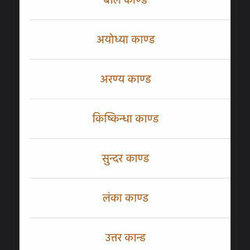 बाल काण्ड
अयोध्या काण्ड
अरण्य काण्ड
किष्किन्धा काण्ड
सुन्दर काण्ड
लंका काण्ड
उत्तर कान्ड